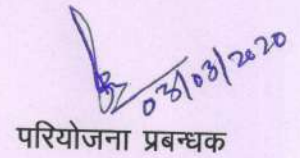 03/03/2020
परियोजना प्रबन्धक